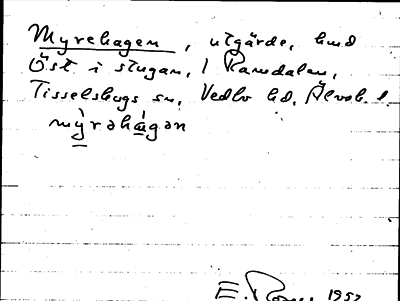 Myrehagen, utgärde, hmd
Öst i stugan, i Ramdalen,
Tisselskogs sn, Vedbo hd, Älvsb. l.
mỳ̱rəhá̱gən
E. 1952